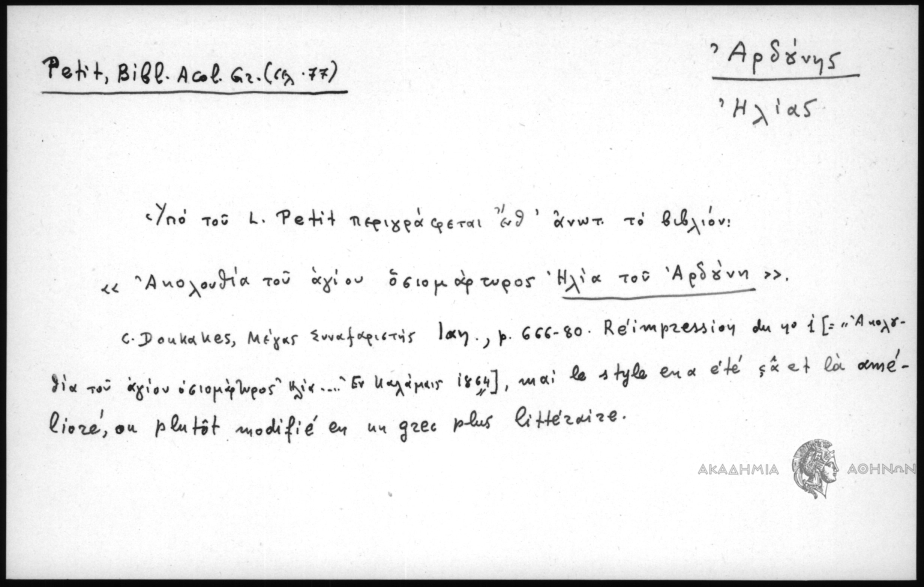 Petit, Bibl. Acol. Gr. (σελ. 77)
Ἀρδούνης
Ἠλίας
Ὑπό τοῦ L. Petit περιγράφεται ἔνθ' ἀνωτ. τό βιβλιόν:
« Ἀκολουθία τοῦ ἁγίου ὁσιομάρτυρος Ἠλία τοῦ Ἀρδούνη ».
C. Doukakes, Μέγας Συναξαριστής Ιαν., p. 666-80. Réimpression du no 1 [= "Ἀκολου-
θία τοῦ ἁγίου ὁσιομάρτυρος Ἠλία.... Ἐν Καλάμαις 1864], mai le style en a été çâ et là amé-
lioré, ou plutôt modifié en un grec plus littéraire.
ΑΚΑΔΗΜΙΑ ΑΘΗΝΩΝ